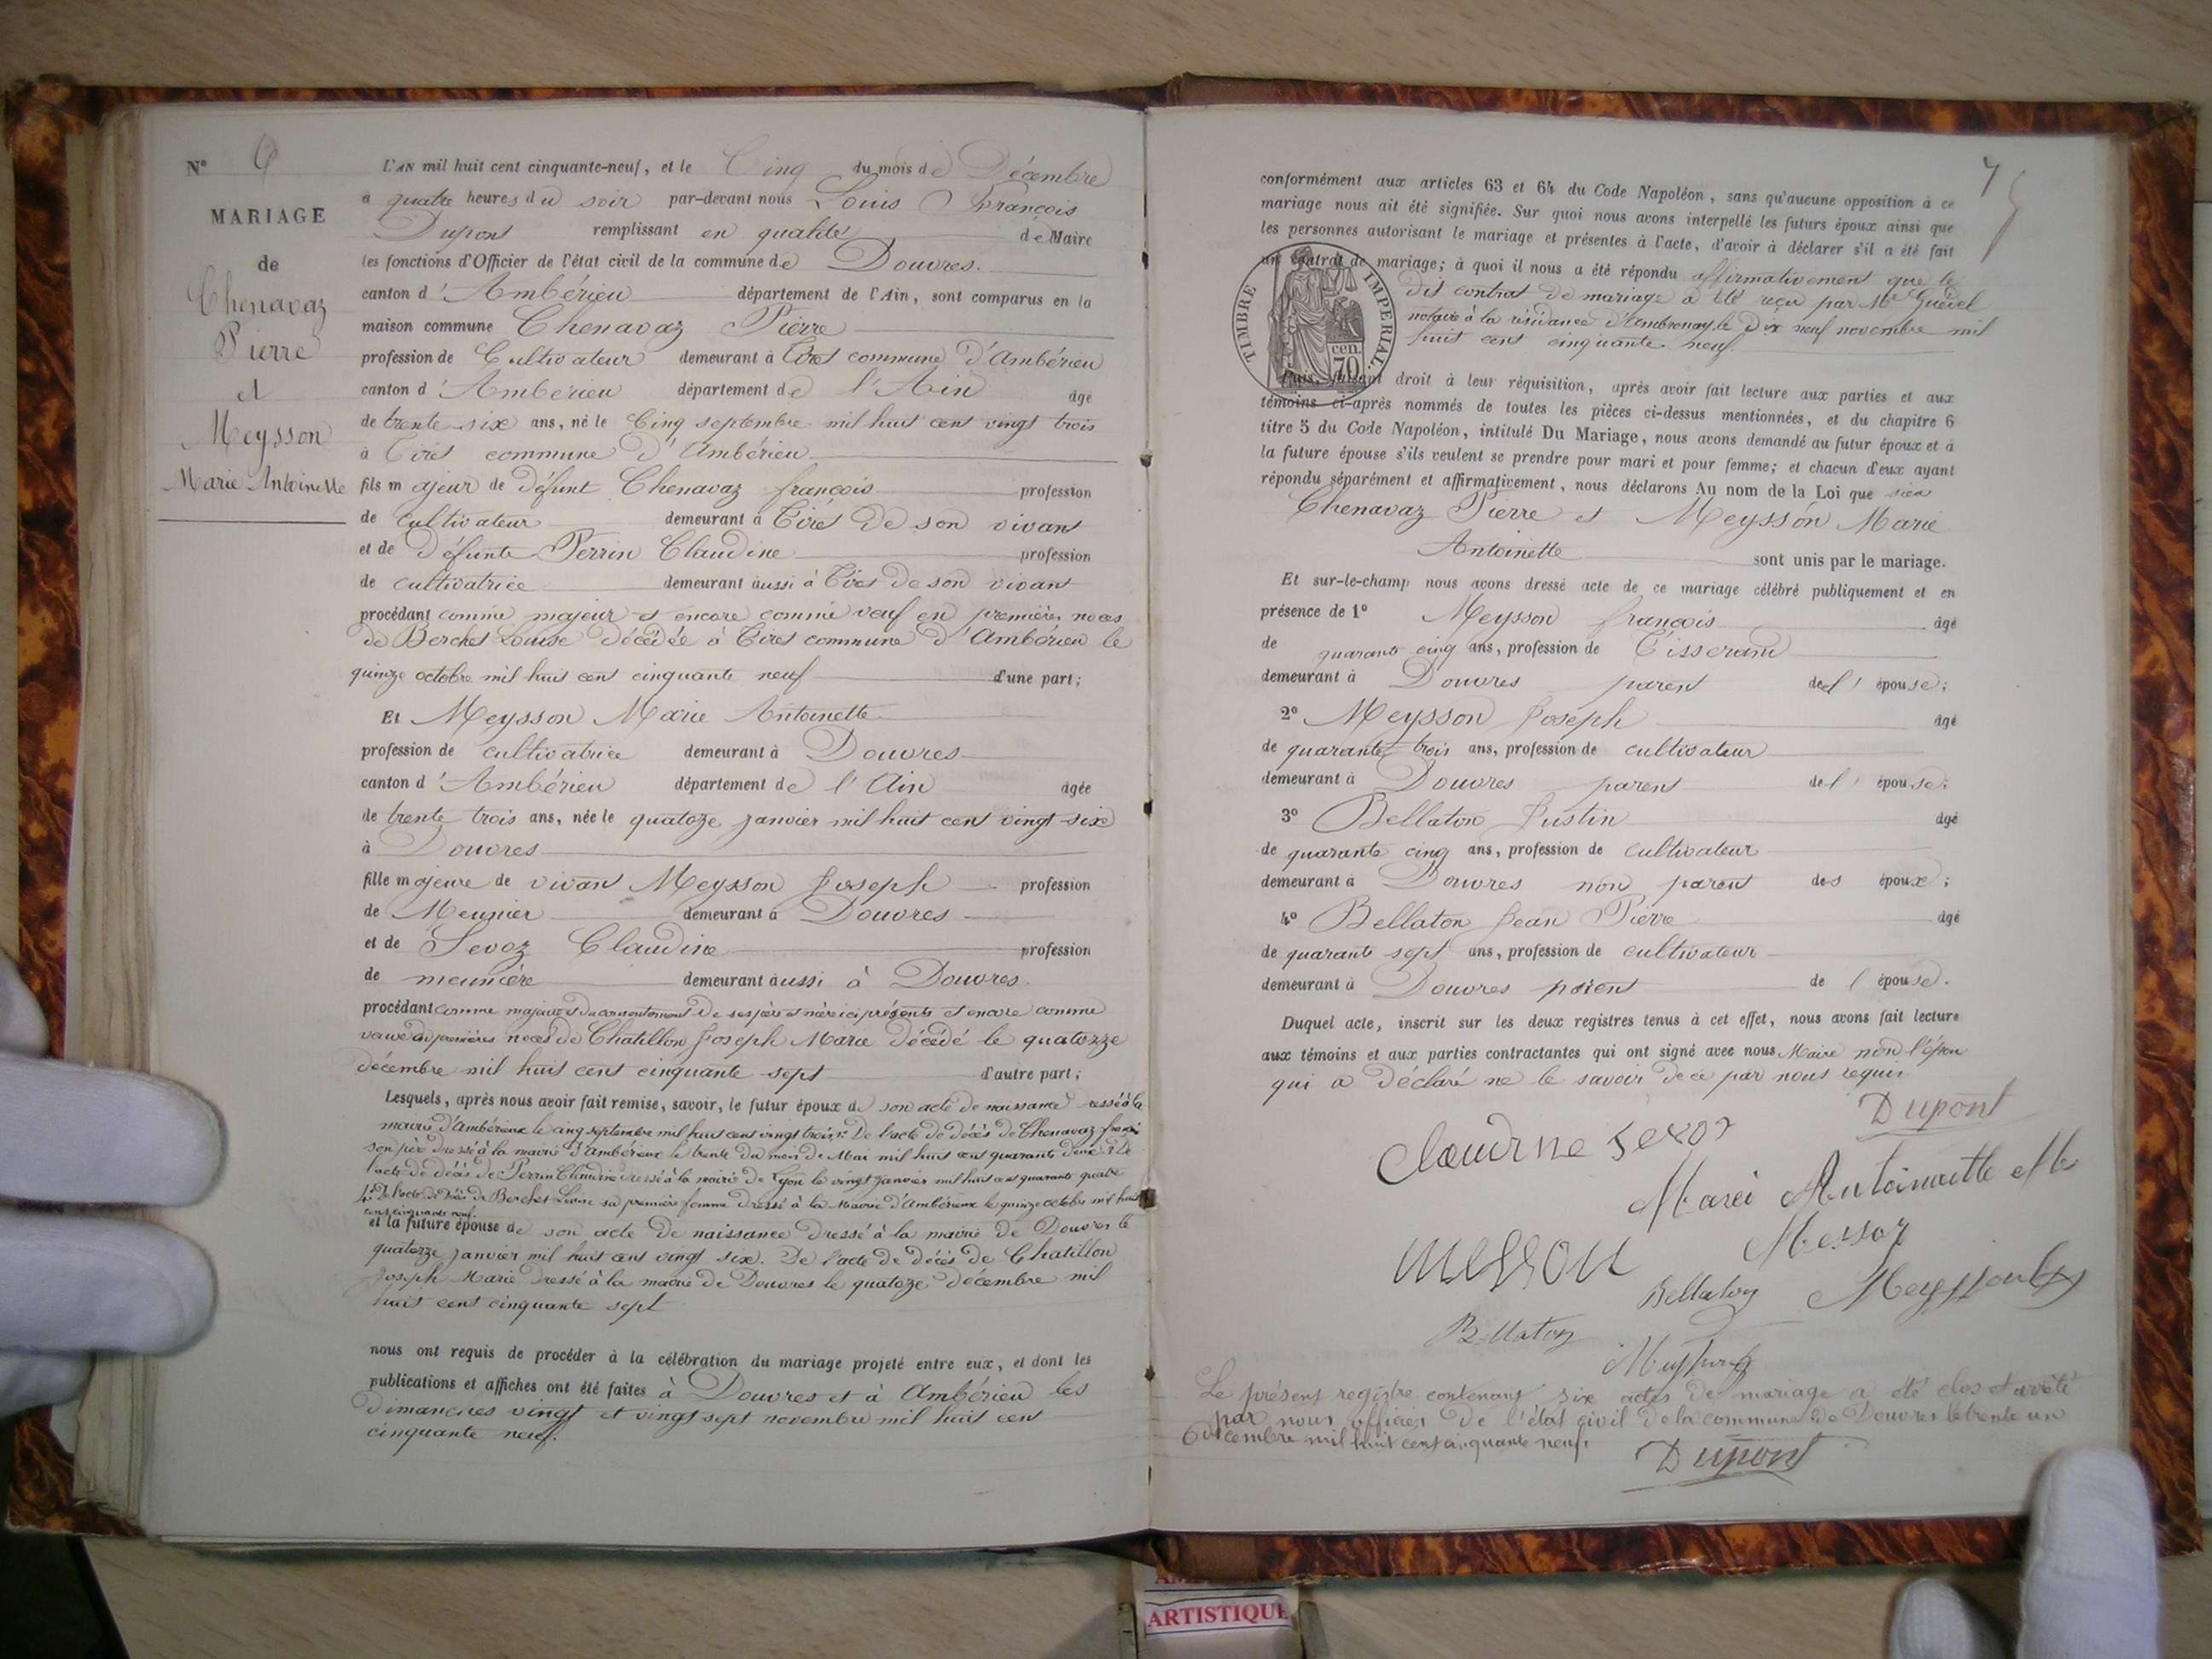 N° 6
MARIAGE
de
Chenavaz
Pierre
et
Meysson
Marie Antoinette
L'AN mil huit cent cinquante-neuf, et le Cinq du mois de Décembre
à quatre heures du soir par-devant nous Louis François
Dupont remplissant en qualité de Maire
les fonctions d'Officier de l'état civil de la commune de Douvres.
canton d'Ambérieu département de l'Ain, sont comparus en la
maison commune Chenavaz Pierre
profession de Cultivateur demeurant à Tiret commune d'Ambérieu
canton d'Ambérieu département de l'Ain âgé
de trente six ans, né le Cinq septembre mil huit cent vingt trois
à Tiret commune d'Ambérieu
fils majeur de défunt Chenavaz françois profession
de cultivateur demeurant à Tiret de son vivant
et de défunte Perrin Claudine profession
de cultivatrice demeurant aussi à Tiret de son vivant
procédant comme majeur et encore comme veuf en premières noces
de Berchet Louise décédée à Tiret commune d'Ambérieu le
quinze octobre mil huit cent cinquante neuf d'une part;
Et Meysson Marie Antoinette
profession de cultivatrice demeurant à Douvres
canton d'Ambérieu département de l'Ain âgée
de trente trois ans, née le quatoze janvier mil huit cent vingt six
à Douvres
fille majeure de vivan Meysson Joseph profession
de Meunier demeurant à Douvres
et de Sevoz Claudine profession
de meunière demeurant aussi à Douvres.
procédant comme majeure et du consentement de ses père et mère ici présents et encore comme
veuve de premières noces de Chatillon Joseph Marie décédé le quatorzze
décembre mil huit cent cinquante sept d'autre part;
Lesquels, après nous avoir fait remise, savoir, le futur époux de son acte de naissance dressé à la
mairie d'Ambérieux le cinq septembre mil huit cent vingt trois; De l'acte de décès de Chenavaz
son père dressé à la mairie d'Ambérieux le trente du mois de Mai mil huit cent quarante De
l'acte de décès de Perrin Claudine dressé à la mairie de Lyon le vingt janvier mil huit cent quarante quatre
4° De l'acte de décès de Berchet Louise sa première femme dressé à la Mairie d'Ambérieux le quinze octobre mil huit
cent cinquante neuf.
et la future épouse de son acte de naissance dressé à la mairie de Douvres le
quatorze janvier mil huit cent vingt six. De l'acte de décès de Chatillon
Joseph Marie dressé à la mairie de Douvres le quatoze décembre mil
huit cent cinquante sept
nous ont requis de procéder à la célébration du mariage projeté entre eux, et dont les
publications et affiches ont été faites à Douvres et à Ambérieu les
dimanches vingt et vingt sept novembre mil huit cent
cinquante neuf.
7
conformément aux articles 63 et 64 du Code Napoléon, sans qu'aucune opposition à ce
mariage nous ait été signifiée. Sur quoi nous avons interpellé les futurs époux ainsi que
les personnes autorisant le mariage et présentes à l'acte, d'avoir à déclarer s'il a été fait
un contrat de mariage; à quoi il nous a été répondu affirmativement que le
dit contrat de mariage a été reçu par Me
notaire à la résidance d'Ambronay, le dix neuf novembre mil
huit cent cinquante neuf.
TIMBRE IMPERIAL
cen.
70
Puis, faisant droit à leur réquisition, après avoir fait lecture aux parties et aux
témoins ci-après nommés de toutes les pièces ci-dessus mentionnées, et du chapitre 6
titre 5 du Code Napoléon, intitulé Du Mariage, nous avons demandé au futur époux et à
la future épouse s'ils veulent se prendre pour mari et pour femme; et chacun d'eux ayant
répondu séparément et affirmativement, nous déclarons Au nom de la Loi que
Chenavaz Pierre et Meysson Marie
Antoinette sont unis par le mariage.
Et sur-le-champ nous avons dressé acte de ce mariage célébré publiquement et en
présence de 1° Meysson françois âgé
de quarante cinq ans, profession de Tisserand
demeurant à Douvres parent de l'épouse;
2° Meysson Joseph âgé
de quarante trois ans, profession de cultivateur
demeurant à Douvres parent de l'épouse;
3° Bellaton Justin âgé
de quarante cinq ans, profession de cultivateur
demeurant à Douvres non parent des époux;
4° Bellaton Jean Pierre âgé
de quarante sept ans, profession de cultivateur
demeurant à Douvres parent de l'épouse.
Duquel acte, inscrit sur les deux registres tenus à cet effet, nous avons fait lecture
aux témoins et aux parties contractantes qui ont signé avec nous Maire non l'époux
qui a déclaré ne le savoir de ce par nous requis
Dupont
Claudine
Marei
Bellaton
Bellaton
Le présent registre contenant six actes de mariage a été clos et arrêté
par nous officier de l'état civil de la commune de Douvres le trente un
décembre mil huit cent cinquante neuf.
Dupont
ARTISTIQUE